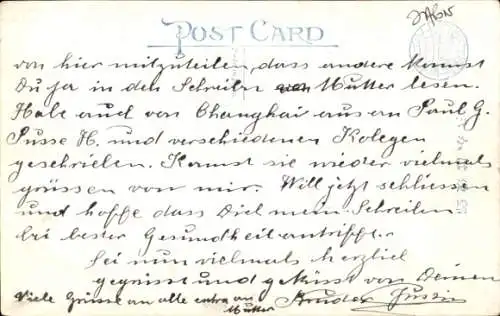 POST CARD
von hier mitzuteilen, dass andere kannst
Du ja in den Schreiben Mutter lesen.
Habe auch von Changhai aus an Paul G.
Susse H. und verschiedenen Kolegen
geschrieben. Kannst sie wieder vielmals
grüssen von mir. Will jetzt schliessen
und hoffe dass Dich mein Schreiben
bei bester Gesundheit antriffe.
Sei nun vielmals herzlich
gegrüsst und geküsst von Deinen
Viele Grüsse an alle extra an Bruder
Mutter